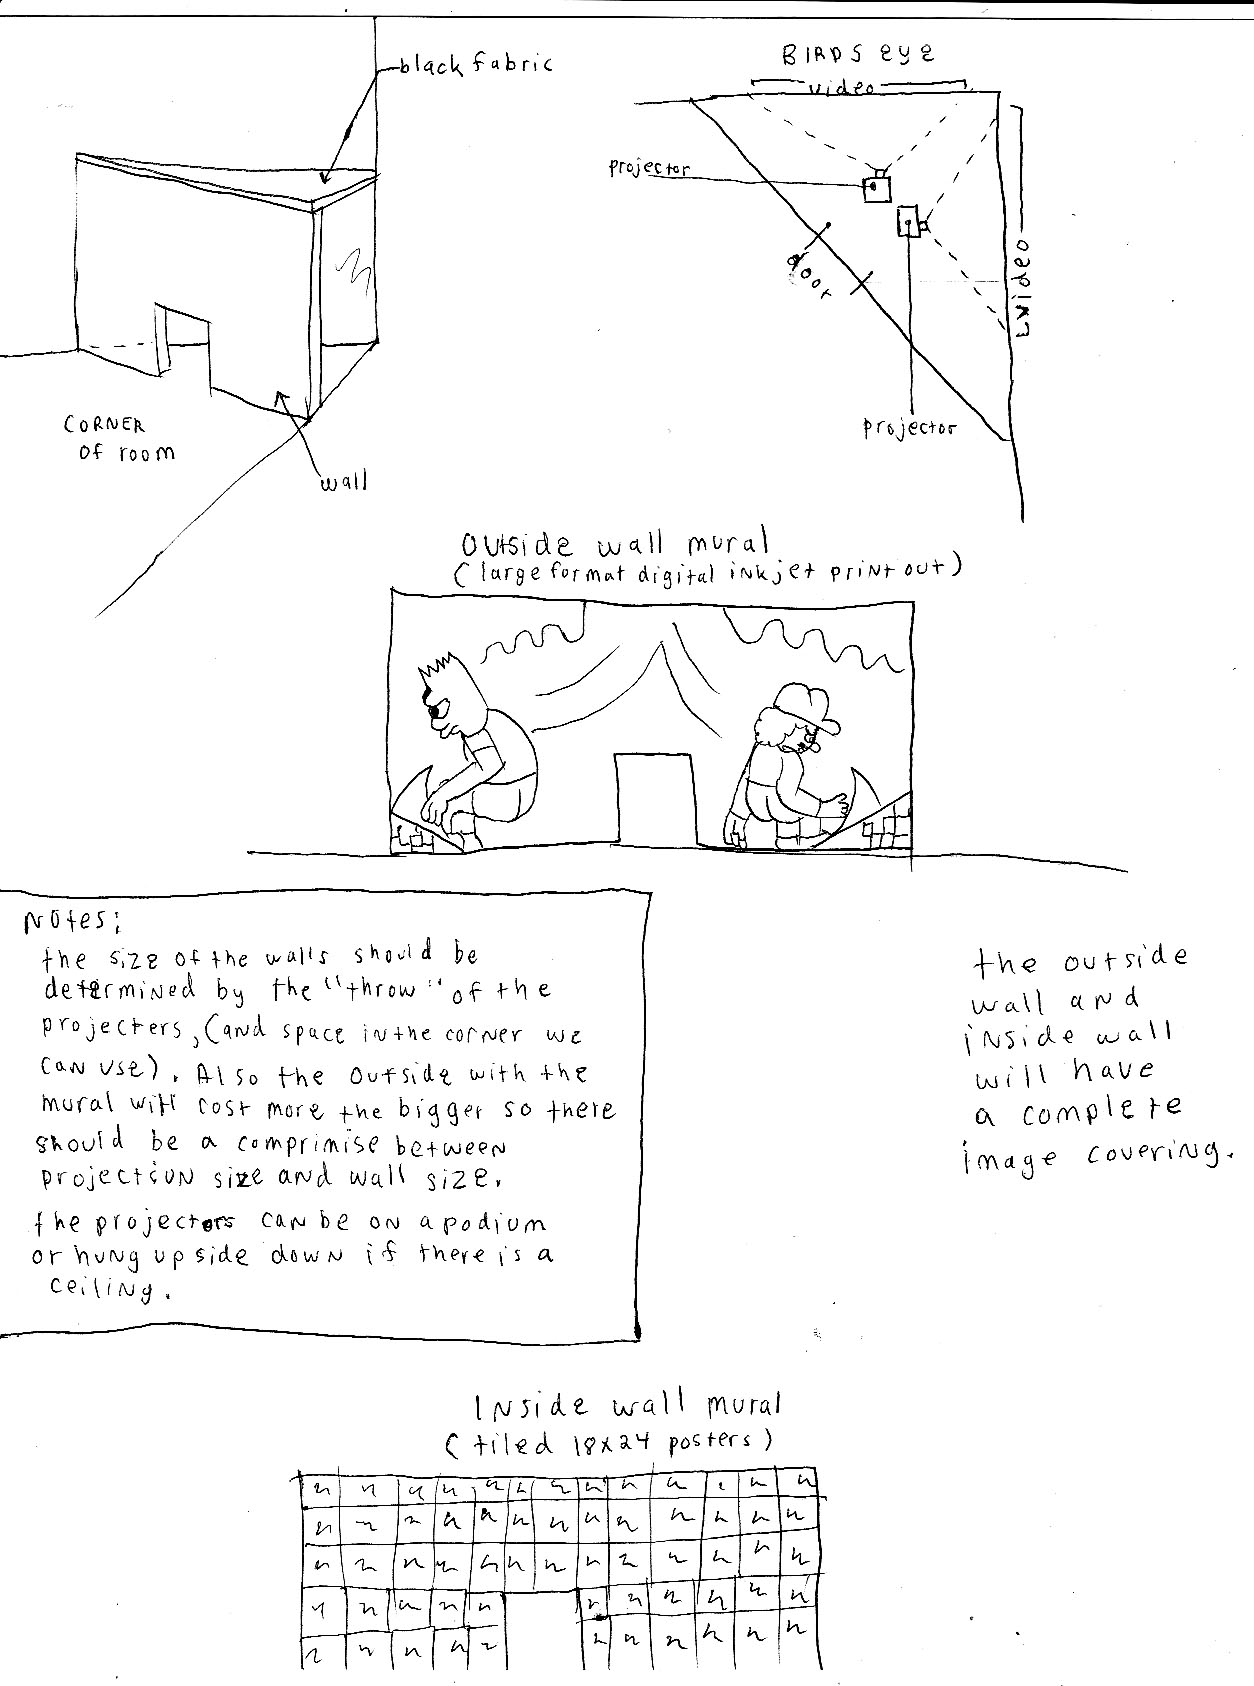 black fabric
BIRDS eye
video
projector
door
video
projector
CORNER
of room
wall
Outside wall mural
(large format digital inkjet print out)
Notes:
the size of the walls should be
determined by the "throw" of the
projecters, (and space in the corner we
can use). Also the outside with the
mural will cost more the bigger so there
should be a comprimise between
projection size and wall size.
the projectors can be on a podium
or hung upside down if there is a
ceiling.
the outside
wall and
inside wall
will have
a complete
image covering.
Inside wall mural
(tiled 18x24 posters)